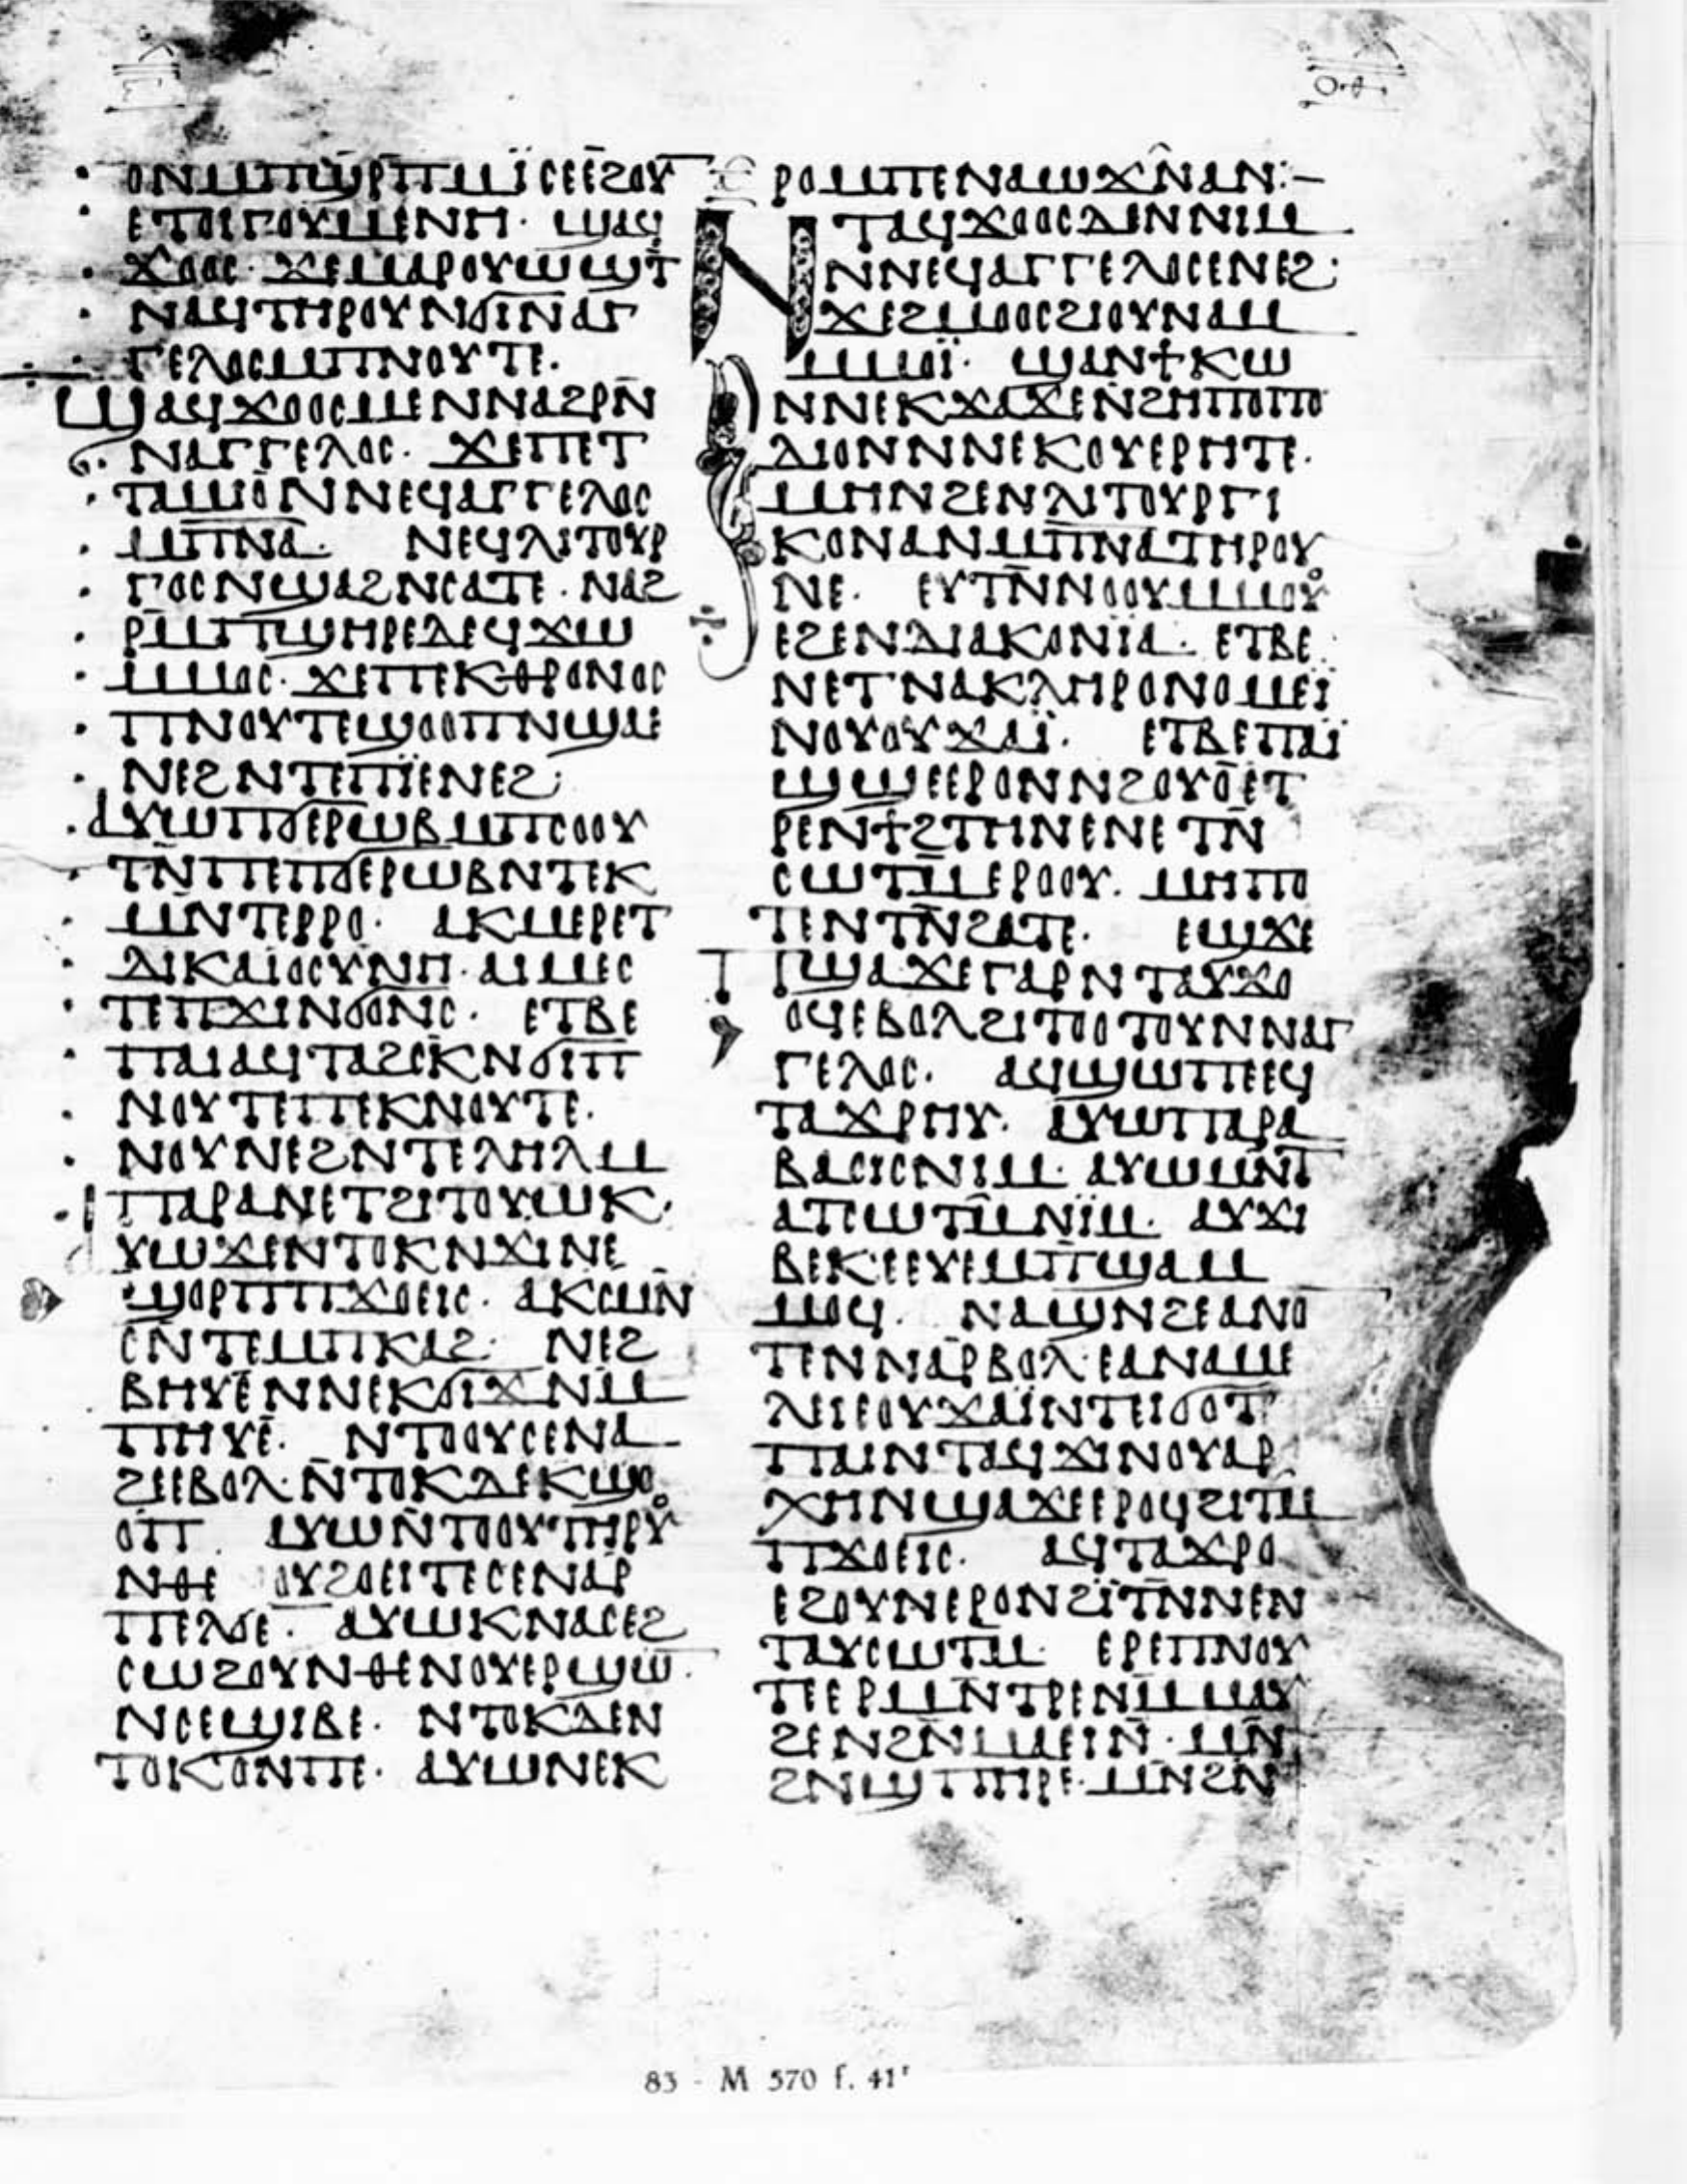 ⲟⲛⲙⲡϣⲣⲡⲙⲙⲓⲥⲉⲉϩⲟⲩ
ⲉⲧⲟⲓⲕⲟⲩⲙⲉⲛⲏ· ϣⲁϥ
ϫⲟⲟⲥ· ϫⲉⲙⲁⲣⲟⲩⲱϣⲧ
ⲛⲁϥⲧⲏⲣⲟⲩⲛϭⲓⲛⲁⲅ
ⲅⲉⲗⲟⲥⲙⲡⲛⲟⲩⲧⲉ·
ϣⲁϥϫⲟⲟⲥⲙⲉⲛⲛⲁϩⲣⲛ̄
ⲛⲁⲅⲅⲉⲗⲟⲥ· ϫⲉⲡⲉⲧ
ⲧⲁⲙⲓⲟⲛⲛⲉϥⲁⲅⲅⲉⲗⲟⲥ
ⲙⲡ̅ⲛ̅ⲁ̅· ⲛⲉϥⲗⲓⲧⲟⲩⲣ
ⲅⲟⲥⲛϣⲁϩⲛⲥⲁⲧⲉ· ⲛⲁϩ
ⲣⲙ̄ⲡϣⲏⲣⲉⲇⲉϥϫⲱ
ⲙⲙⲟⲥ· ϫⲉⲡⲉⲕⲑⲣⲟⲛⲟⲥ
ⲡⲛⲟⲩⲧⲉϣⲟⲟⲡⲛϣⲁⲉ
ⲛⲉϩⲛⲧⲉⲡⲓ̈ⲉⲛⲉϩ:
ⲁⲩⲱⲡϭⲉⲣⲱⲃⲙⲡⲥⲟⲟⲩ
ⲧⲛ̄ⲡⲉⲡϭⲉⲣⲱⲃⲛⲧⲉⲕ
ⲙⲛⲧⲉⲣⲣⲟ· ⲁⲕⲙⲉⲣⲉⲧ
ⲇⲓⲕⲁⲓⲟⲥⲩⲛⲏ· ⲁⲓⲙⲉⲥ
ⲧⲉⲡϫⲓⲛϭⲟⲛⲥ· ⲉⲧⲃⲉ
ⲡⲁⲓⲁϥⲧⲁϩⲥⲕ̄ⲛϭⲓⲡ
ⲛⲟⲩⲧⲉⲡⲉⲕⲛⲟⲩⲧⲉ·
ⲛⲟⲩⲛⲉϩⲛⲧⲉⲗⲏⲗⲙ
ⲡⲁⲣⲁⲛⲉⲧϩⲓⲧⲟⲩⲱⲕ·
ⲁⲩⲱϫⲉⲛⲧⲟⲕⲛϫⲓⲛⲉ
ϣⲟⲣⲡⲡϫⲟⲉⲓⲥ· ⲁⲕⲥⲙⲛ̄
ⲥⲛⲧⲉⲙⲡⲕⲁϩ· ⲛⲉϩ
ⲃⲏⲩⲉⲛⲛⲉⲕϭⲓϫⲛⲙ
ⲡⲏⲩⲉ· ⲛⲧⲟⲟⲩⲥⲉⲛⲁ
ϩⲉⲉⲃⲟⲗ· ⲛ̄ⲧⲟⲕⲇⲉⲕϣⲟ
ⲟⲡ ⲁⲩⲱⲛ̄ⲧⲟⲟⲩⲧⲏⲣⲟⲩ
ⲛⲑⲉ ⲟⲩϩⲟⲉⲓⲧⲉⲥⲉⲛⲁⲣ̄
ⲡⲉⲗϭⲉ· ⲁⲩⲱⲕⲛⲁⲥⲉϩ
ⲥⲱϩⲟⲩⲛⲑⲉⲛⲟⲩⲉⲣϣⲱ
ⲛⲥⲉϣⲓⲃⲉ· ⲛⲧⲟⲕⲇⲉⲛ
ⲧⲟⲕⲟⲛⲡⲉ· ⲁⲩⲱⲛⲉⲕ
ⲣⲟⲙⲡⲉⲛⲁⲱϫⲛ̂ⲁⲛ:–
ⲛⲧⲁϥϫⲟⲟⲥⲇⲉⲛⲛⲓⲙ
ⲛⲛⲉϥⲁⲅⲅⲉⲗⲟⲥⲉⲛⲉϩ:
ϫⲉϩⲙⲟⲟⲥϩⲓⲟⲩⲛⲁⲙ
ⲙⲙⲟⲓ̈· ϣⲁⲛϯⲕⲱ
ⲛⲛⲉⲕϫⲁϫⲉⲛϩⲏⲡⲟⲡⲟ
ⲇⲓⲟⲛⲛⲛⲉⲕⲟⲩⲉⲣⲏⲧⲉ·
ⲙⲏⲛϩⲉⲛⲗⲓⲧⲟⲩⲣⲅⲓ
ⲕⲟⲛⲁⲛⲙⲡ̅ⲛ̅ⲁ̅ⲧⲏⲣⲟⲩ
ⲛⲉ· ⲉⲩⲧⲛ̄ⲛⲟⲟⲩⲙⲙⲟⲟⲩ
ⲉϩⲉⲛⲇⲓⲁⲕⲟⲛⲓ̈ⲁ· ⲉⲧⲃⲉ
ⲛⲉⲧⲛⲁⲕⲗⲏⲣⲟⲛⲟⲙⲉⲓ̈
ⲛⲟⲩⲟⲩϫⲁⲓ̈· ⲉⲧⲃⲉⲡⲁⲓ̈
ϣϣⲉⲉⲣⲟⲛⲛϩⲟⲩⲟⲉⲧ
ⲣⲉⲛϯϩⲧⲏⲛⲉⲛⲉⲧⲛ̄
ⲥⲱⲧⲙ̄ⲉⲣⲟⲟⲩ· ⲙⲏⲡⲟ
ⲧⲉⲛⲧⲛ̄ϩⲁⲧⲉ· ⲉϣϫⲉ
ⲡϣⲁϫⲉⲅⲁⲣⲛⲧⲁⲩϫⲟ
ⲟϥⲉⲃⲟⲗϩⲓⲧⲟⲟⲧⲟⲩⲛⲛⲁⲅ
ⲅⲉⲗⲟⲥ· ⲁϥϣⲱⲡⲉⲉϥ
ⲧⲁϫⲣⲏⲩ· ⲁⲩⲱⲡⲁⲣⲁ
ⲃⲁⲥⲓⲥⲛⲓⲙ· ⲁⲩⲱⲙⲛ̄ⲧ
ⲁⲧⲥⲱⲧⲙ̄ⲛⲓ̈ⲙ· ⲁⲩϫⲓ
ⲃⲉⲕⲉⲉⲩⲉⲙⲡϣⲁⲙ
ⲙⲟϥ· ⲛⲁϣⲛϩⲉⲁⲛⲟ
ⲧⲉⲛⲛⲁⲣ̄ⲃⲟⲗ· ⲉⲁⲛⲁⲙⲉ
ⲗⲉⲓⲉⲟⲩϫⲁⲓ̈ⲛⲧⲉⲓϭⲟⲧ
ⲡⲁⲓⲛⲧⲁϥϫⲓⲛⲟⲩⲁⲣ
ⲭⲏⲛϣⲁϫⲉⲉⲣⲟϥϩⲓⲧⲙ
ⲡϫⲟⲉⲓⲥ· ⲁϥⲧⲁϫⲣⲟ
ⲉϩⲟⲩⲛⲉⲣⲟⲛϩⲓ̈ⲧⲛ̄ⲛⲉⲛ
ⲧⲁⲩⲥⲱⲧⲙ· ⲉⲣⲉⲡⲛⲟⲩ
ⲧⲉⲉⲣⲙⲛⲧⲣⲉⲛⲙⲙⲁⲩ
ϩⲉⲛϩⲛ̄ⲙⲁⲉⲓⲛ· ⲙⲛ̄
ϩⲛϣⲡⲏⲣⲉ· ⲙⲛϩⲛ
83 - M 570 f. 41ʳ